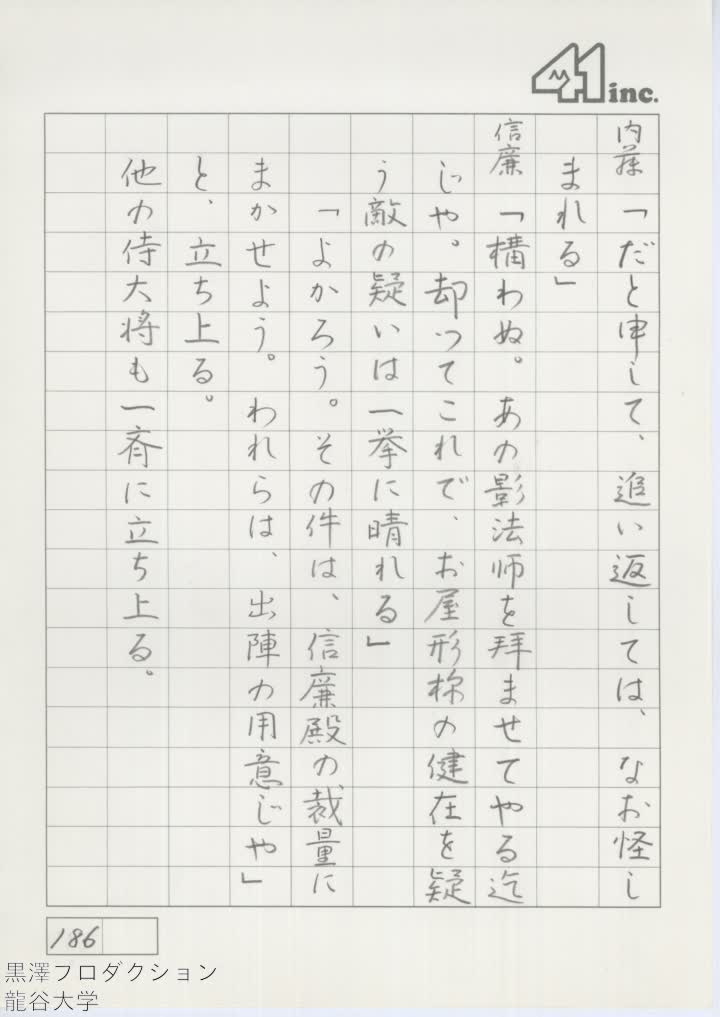 41 inc.
内藤「だと申して、追い返しては、なお怪し
まれる」
信廉「構わぬ。あの影法師を拝ませてやる迄
じゃ。却ってこれで、お屋形様の健在を疑
う敵の疑いは一挙に晴れる」
「よかろう。その件は、信廉殿の裁量に
まかせよう。われらは、出陣の用意じゃ」
と、立ち上る。
他の侍大将も一斉に立ち上る。
186
黒澤プロダクション
龍谷大学